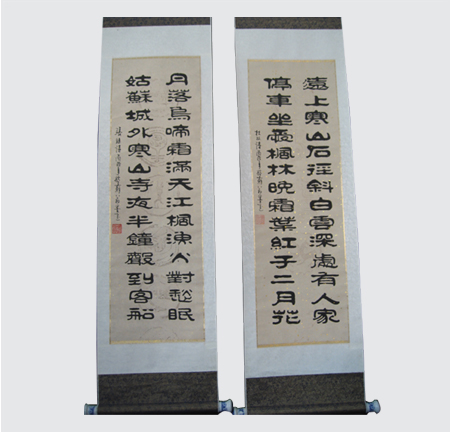 遠上寒山石徑斜白雲深處有人家
停車坐愛楓林晚霜葉紅于二月花
杜牧詩
月落烏啼霜滿天江楓漁火對愁眠
姑蘇城外寒山寺夜半鐘聲到客船
張繼詩